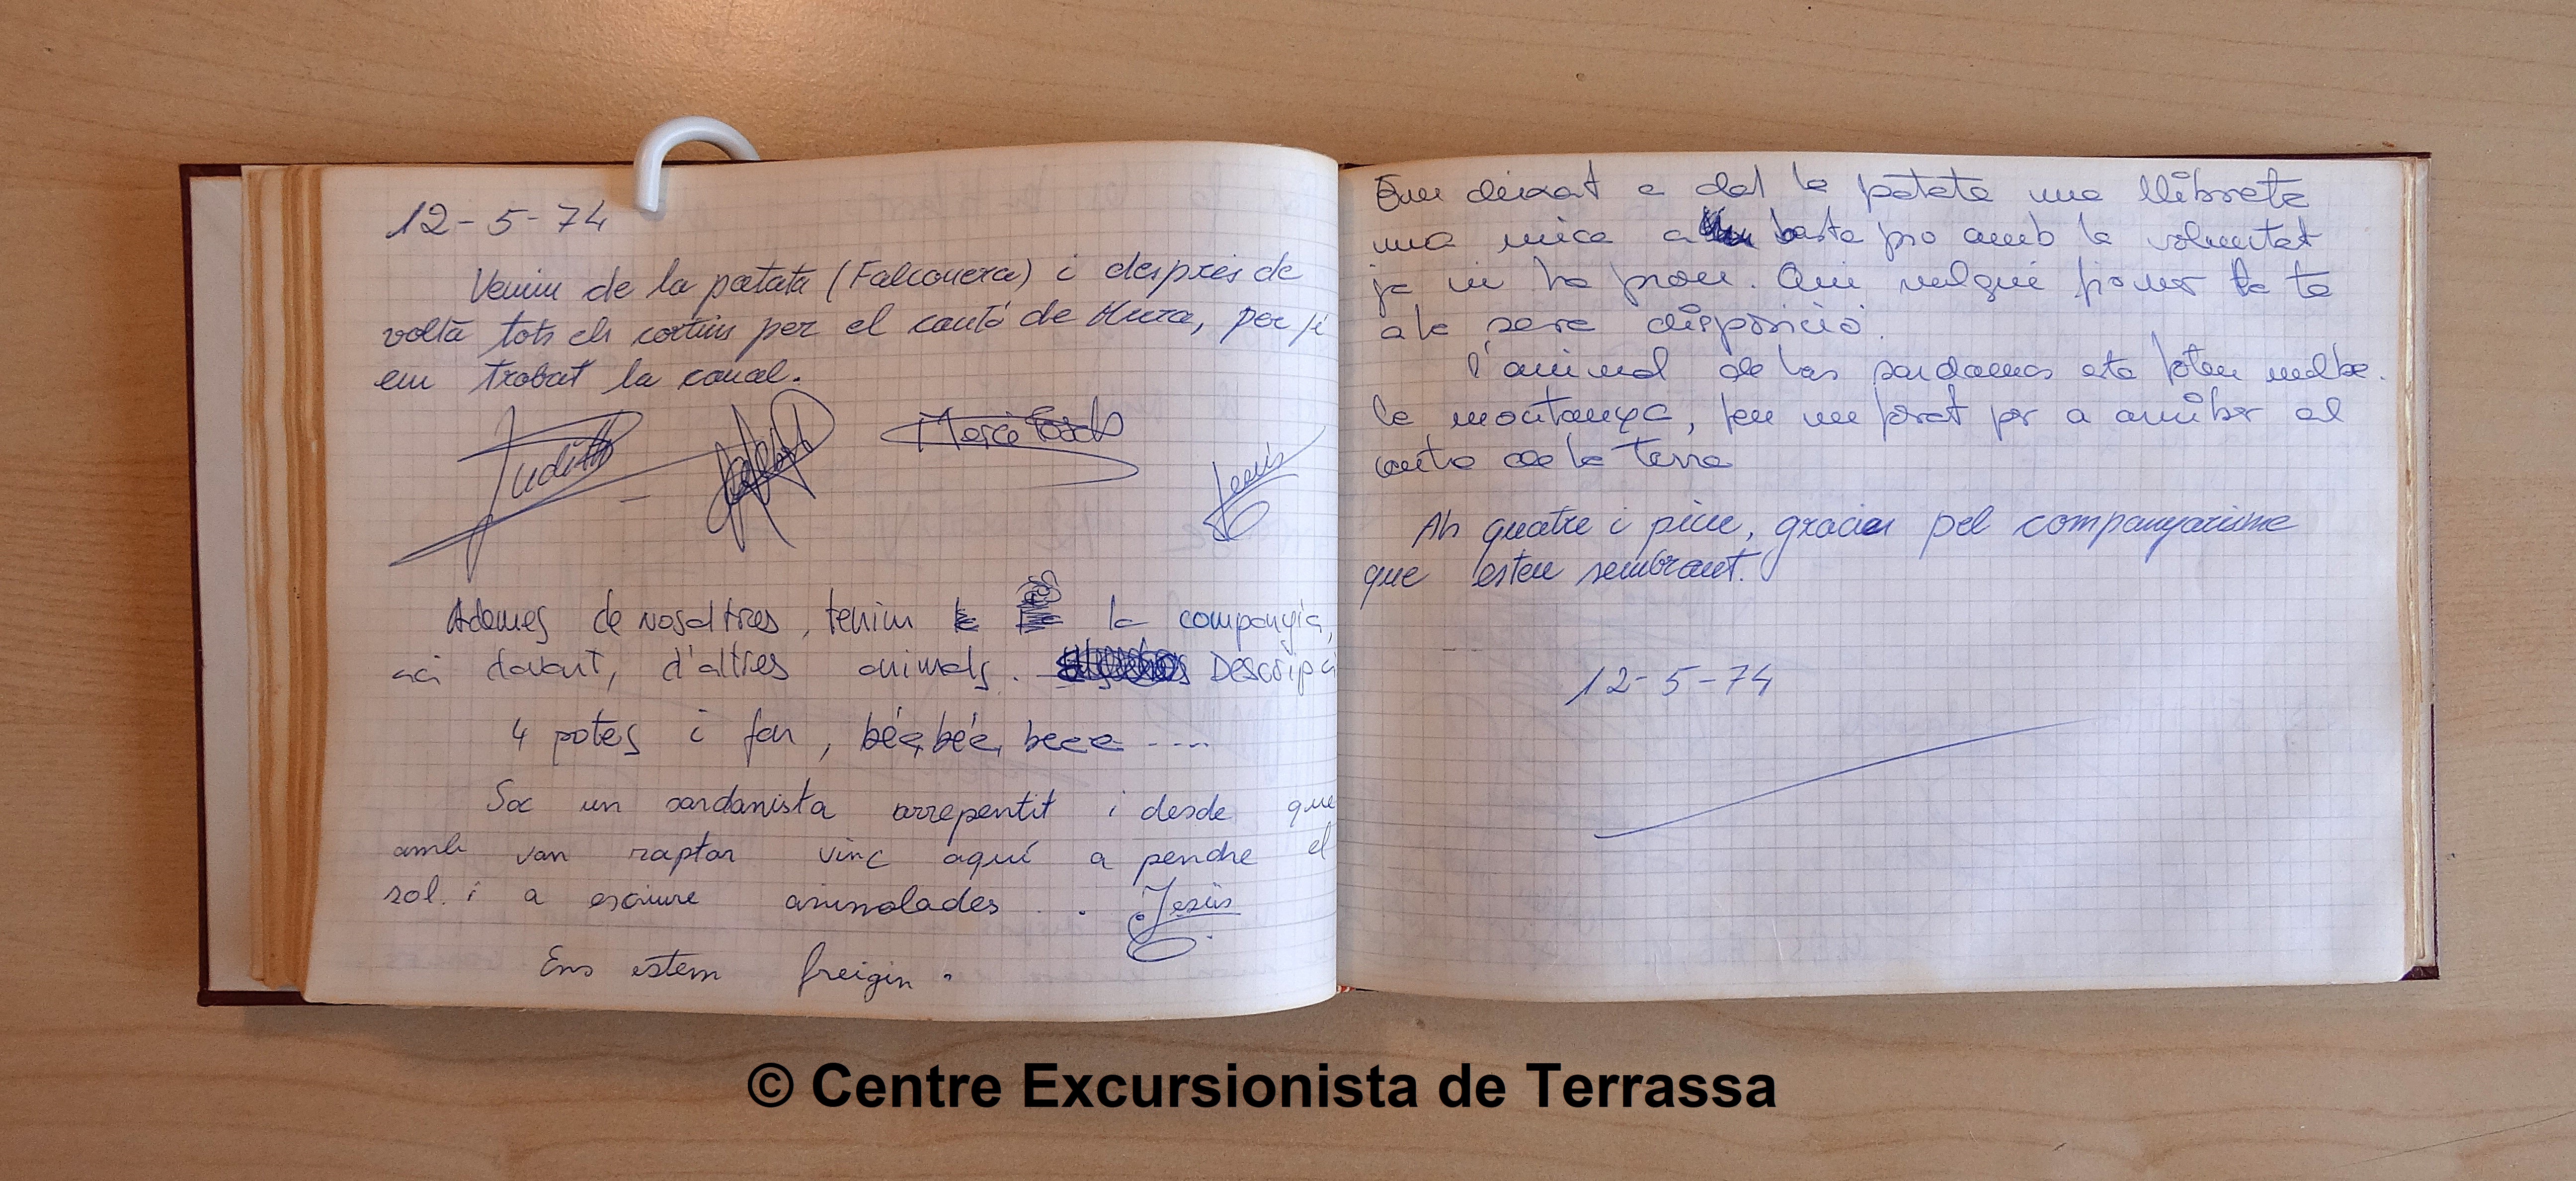 12-5-74
Venim de la patata (Falconera) i despres de
voltà tots els cortins per el cantó de Mura, per fi
em trobat la canal.
Judith
Mercè
Jesús
Ademes de nosaltres, tenim la companyia,
aci davant, d'altres animals. Descripció
4 potes i fan, béé, béé, beee ....
Soc un sardanista arrepentit i desde que
amb van raptar vinc aquí a pendre el
sol. i a escriure animalades . . Jesús
Ens estem freigin.
Em deixat a dal la patata una llibreta
una mica basta pro amb la voluntat
ja ni ha prou. Qui vulgui pionar la te
a la seva disposició.
l'animal de las sardanas esta foten malbe.
la montanya, feu un forat per a arribar al
centre de la terra
Als quatre i pico, gracies pel companyarisme
que esteu sembrant.
12-5-74
© Centre Excursionista de Terrassa